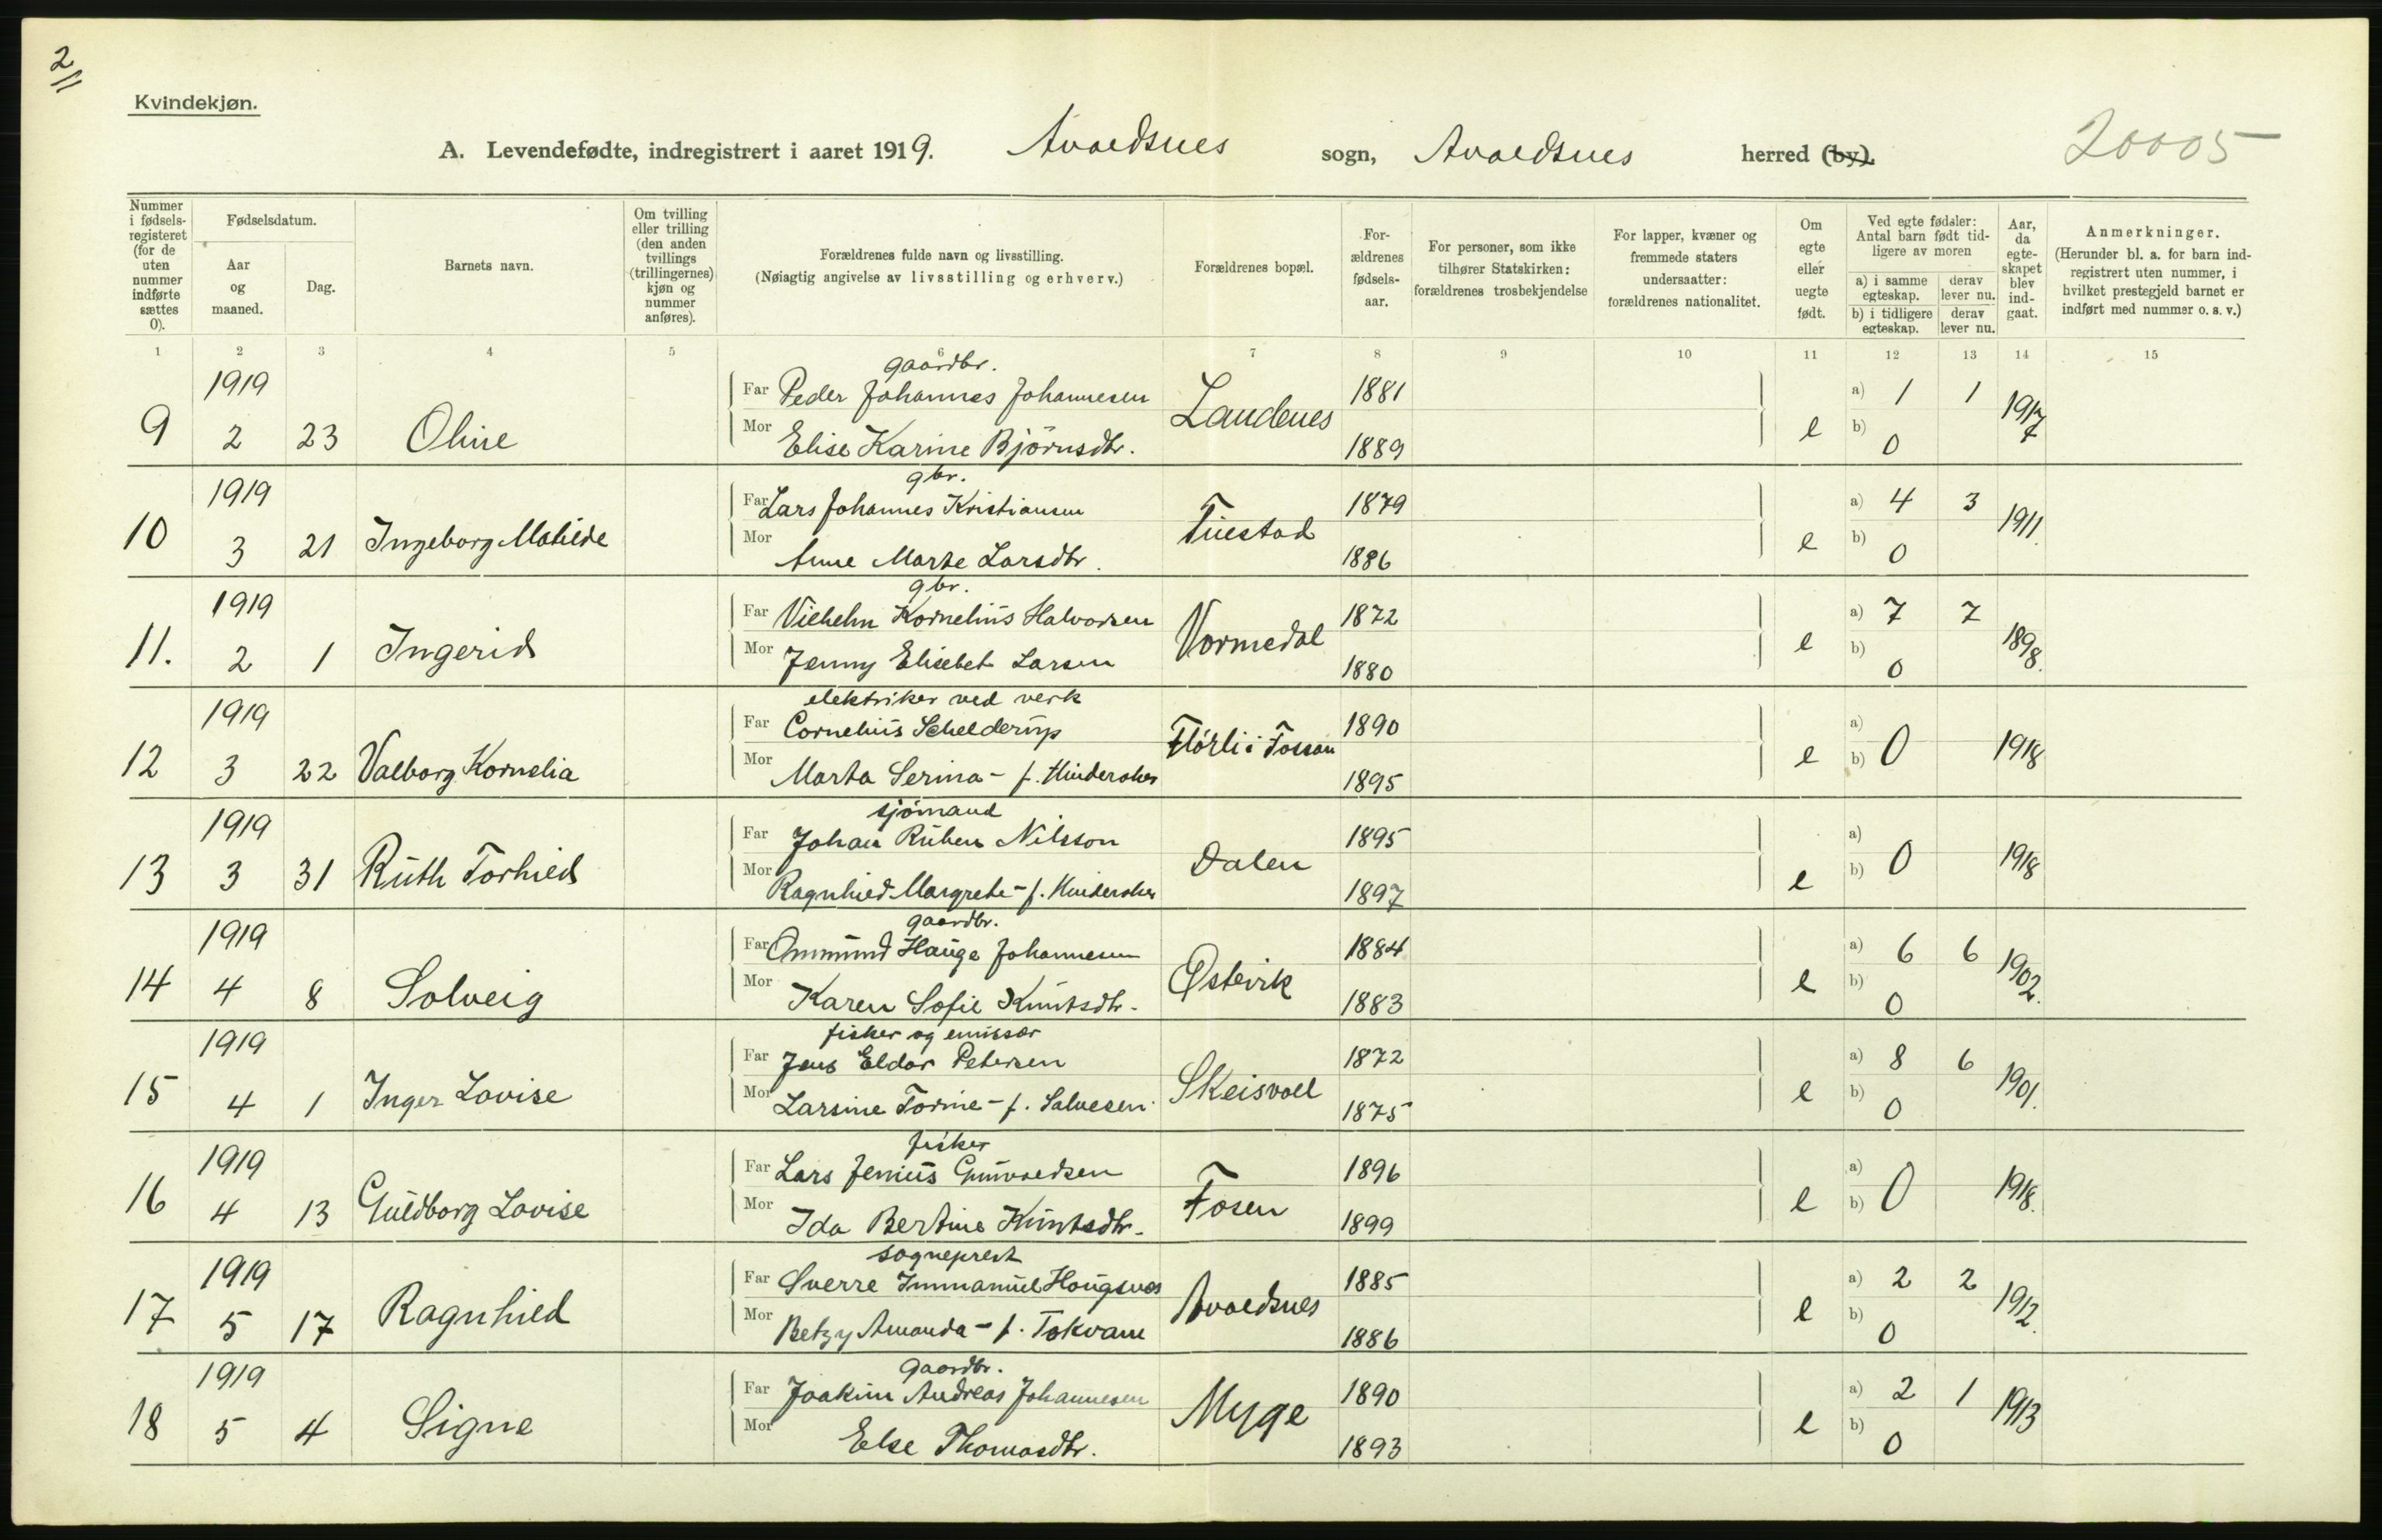 2/11
Kvindekjøn.
A. Levendefødte, indregistrert i aaret 1919. Avaldsnes sogn, Avaldsnes herred (by).
20005
Nummer i fødsels-registeret (for de uten nummer indførte sættes 0).
Fødselsdatum.
Aar og maaned.
Dag.
Barnets navn.
Om tvilling eller trilling (den anden tvillings (trillingernes) kjøn og nummer anføres).
Forældrenes fulde navn og livsstilling.
(Nøiagtig angivelse av livsstilling og erhverv.)
Forældrenes bopæl.
For-ældrenes fødsels-aar.
For personer, som ikke tilhører Statskirken: forældrenes trosbekjendelse
For lapper, kvæner og fremmede staters undersaatter: forældrenes nationalitet.
Om egte eller uegte født.
Ved egte fødsler: Antal barn født tid-ligere av moren
a) i samme egteskap.
derav lever nu.
b) i tidligere egteskap.
derav lever nu.
Aar, da egte-skapet blev ind-gaat.
Anmerkninger.
(Herunder bl. a. for barn ind-registrert uten nummer, i hvilket prestegjeld barnet er indført med nummer o. s. v.)
1 2 3 4 5 6 7 8 9 10 11 12 13 14 15
gaardbr.
1919 Far Peder Johannes Johannesen 1881 a) 1 1
9 2 23 Oline Mor Elise Karine Björnsdtr. Landenes 1889 e b) 0 1917
gbr.
1919 Far Lars Johannes Kristiansen 1879 a) 4 3
10 3 21 Ingeborg Matilde Mor Anne Marte Larsdtr. Tuestad 1886 e b) 0 1911
gbr.
1919 Far Vilhelm Kornelius Halvorsen 1872 a) 7 7
11. 2 1 Ingerid Mor Jenny Elisebet Larsen Vormedal 1880 e b) 0 1898.
elektriker ved verk
1919 Far Cornelius Schelderup 1890 a)
12 3 22 Valborg Kornelia Mor Marta Serina - f. Flörli i Fossan 1895 e b) 0 1918
sjömand
1919 Far Johan Ruben Nilsson 1895 a)
13 3 31 Ruth Torhild Mor Ragnhild Margrete - f. Dalen 1897 e b) 0 1918
gaardbr.
1919 Far Ommund Hauge Johannesen 1884 a) 6 6
14 4 8 Solveig Mor Karen Sofie Knutsdtr. Østevik 1883 e b) 0 1902.
fisker og emissær
1919 Far Jens Eldor Petersen 1872 a) 8 6
15 4 1 Inger Lovise Mor Larsine Torine - f. Salvesen Skeisvoll 1875 e b) 0 1901.
fisker
1919 Far Lars Jenius Gunvaldsen 1896 a)
16 4 13 Guldborg Lovise Mor Ida Bertine Knutsdtr. Fosen 1899 e b) 0 1918.
sogneprest
1919 Far Sverre Immanuel Hougsnæs 1885 a) 2 2
17 5 17 Ragnhild Mor Betzy Amanda - f. Tokvam Avaldsnes 1886 e b) 0 1912.
gaardbr.
1919 Far Joakim Andreas Johannesen 1890 a) 2 1
18 5 4 Signe Mor Else Thomasdtr. Myge 1893 e b) 0 1913